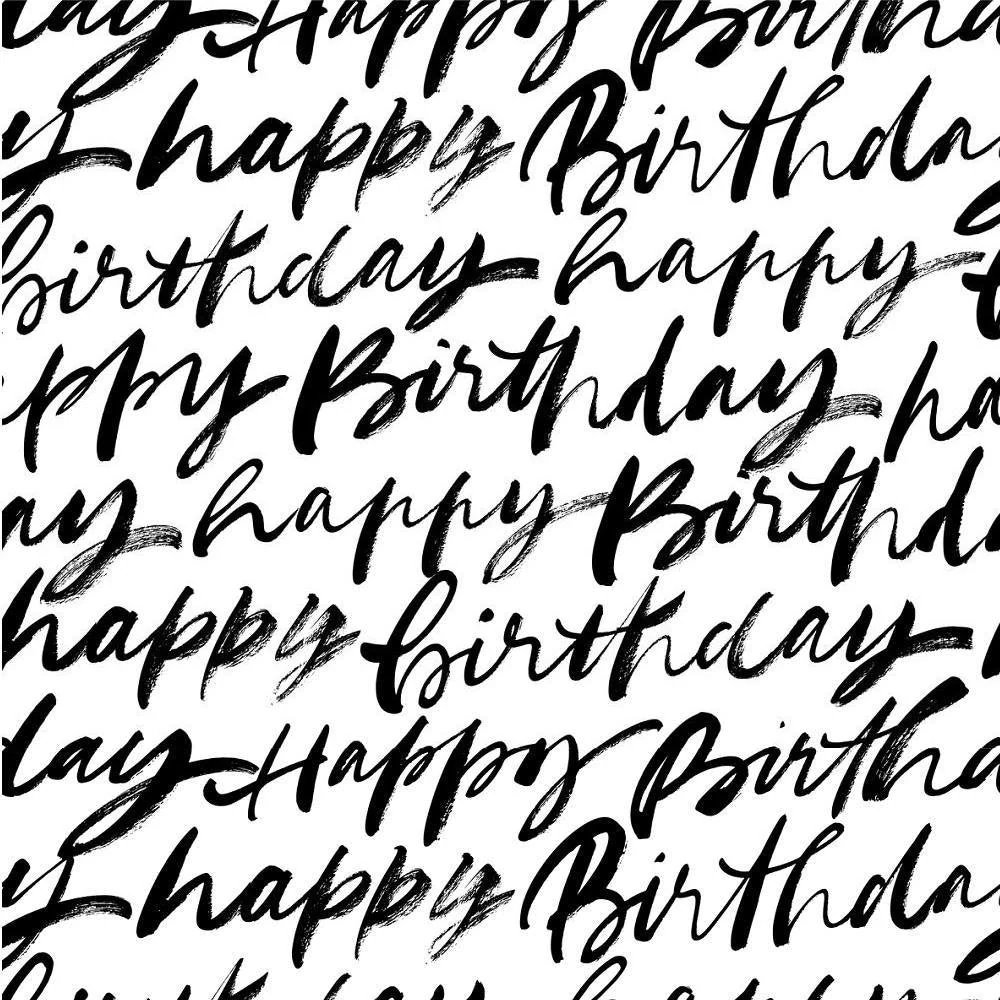 day Happy Birthd
y happy Birthda
birthday happy b
ppy Birthday ha
ay happy Birthd
happy birthday
day Happy Birthd
y happy Birthda